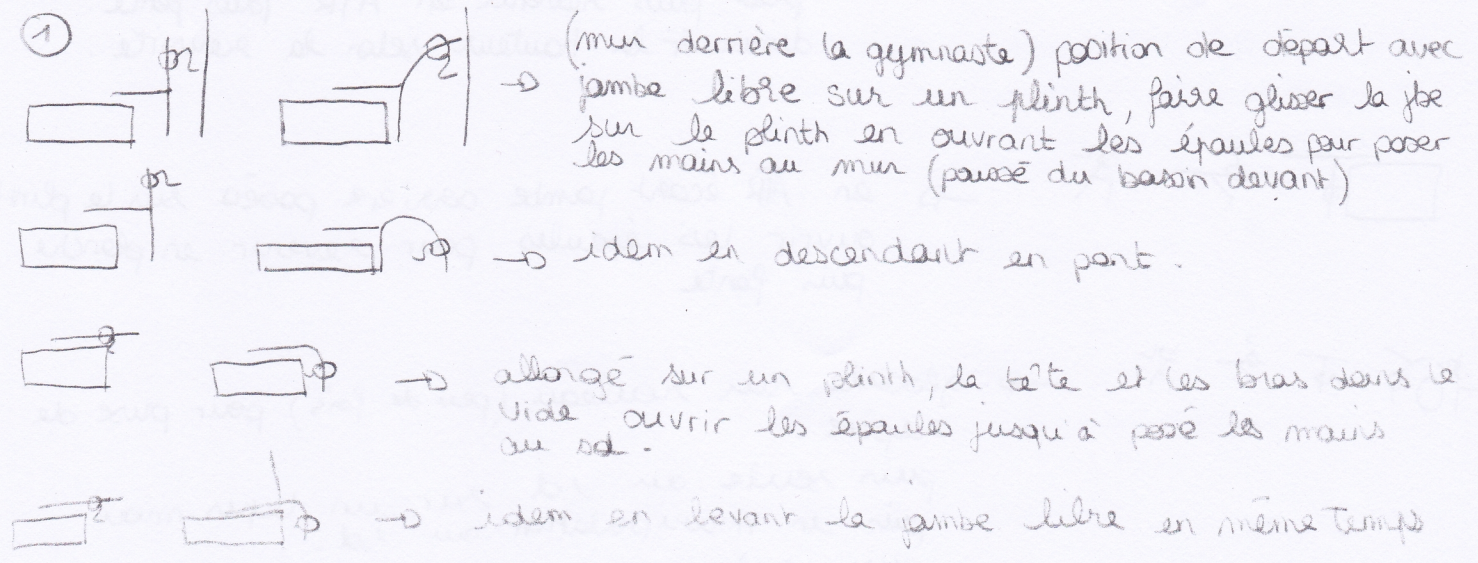 1
→ (mur derrière la gymnaste) position de départ avec
jambe libre sur un plinth, faire glisser la jbe
sur le plinth en ouvrant les épaules pour poser
les mains au mur (poussé du bassin devant)
→ idem en descendant en pont.
→ allongé sur un plinth, la tête et les bras dans le
vide ouvrir les épaules jusqu'à posé les mains
au sol.
→ idem en levant la jambe libre en même temps